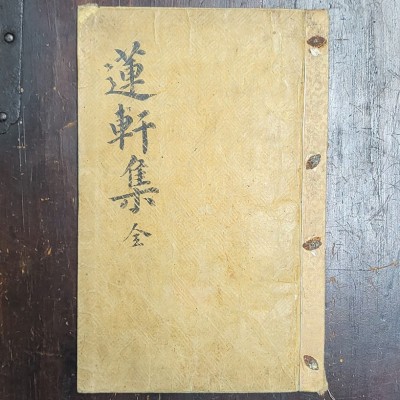 蓮軒集 全